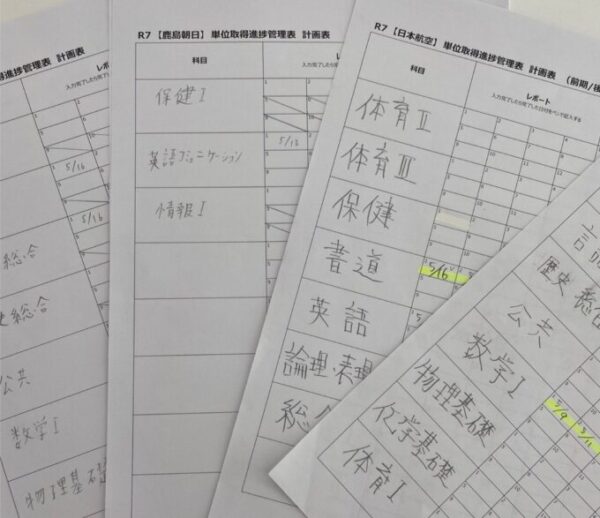 得進捗管理表 計画表
レポート
入力完了したら完了
5/16
5/16
総合
史総合
公共
数学Ⅰ
物理基礎
R7【鹿島朝日】単位取得進捗管理表 計画表
科目
保健Ⅰ
英語コミュニケーション
5/13
情報Ⅰ
R7【日本航空】単位取得進捗管理表 計画表 (前期/後
科目
レポート
入力完了したら完了した日付をペンで記入する
体育Ⅱ
体育Ⅲ
保健
書道
5/16
英語
論理・表現
総
歴史総合
公共
数学Ⅰ
物理基礎
5/9
5/11
化学基礎
体育Ⅰ